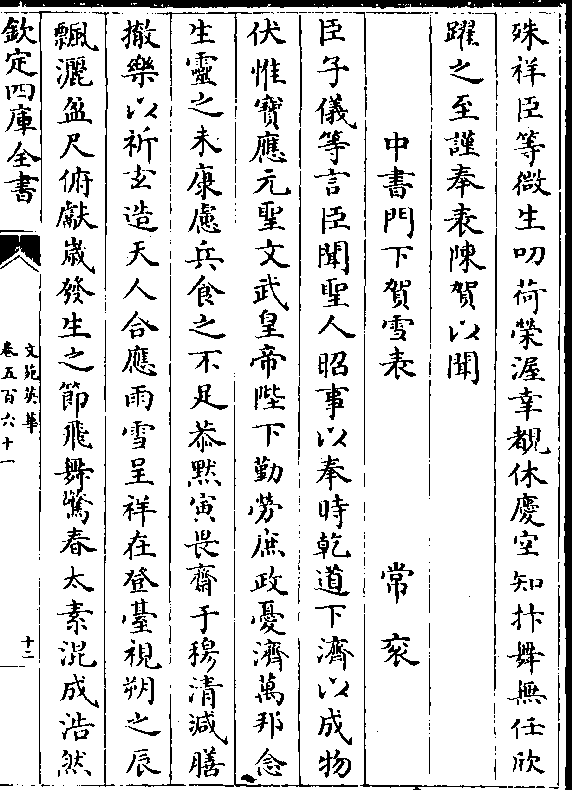 殊祥臣等微生叨荷榮渥幸覩休慶空知抃舞無任欣
躍之至謹奉表陳賀以聞
中書門下賀雪表　常衮
臣子儀等言臣聞聖人昭事以奉時乾道下濟以成物
伏惟寶應元聖文武皇帝陛下勤勞庶政憂濟萬邦念
生靈之未康慮兵食之不足恭默寅畏齋于穆清減膳
撤樂以祈玄造天人合應雨雪呈祥在登臺視朔之辰
飄灑盈尺俯獻歲發生之節飛舞驚春太素混成浩然
欽定四庫全書
文苑英華
卷五百六十一
十二